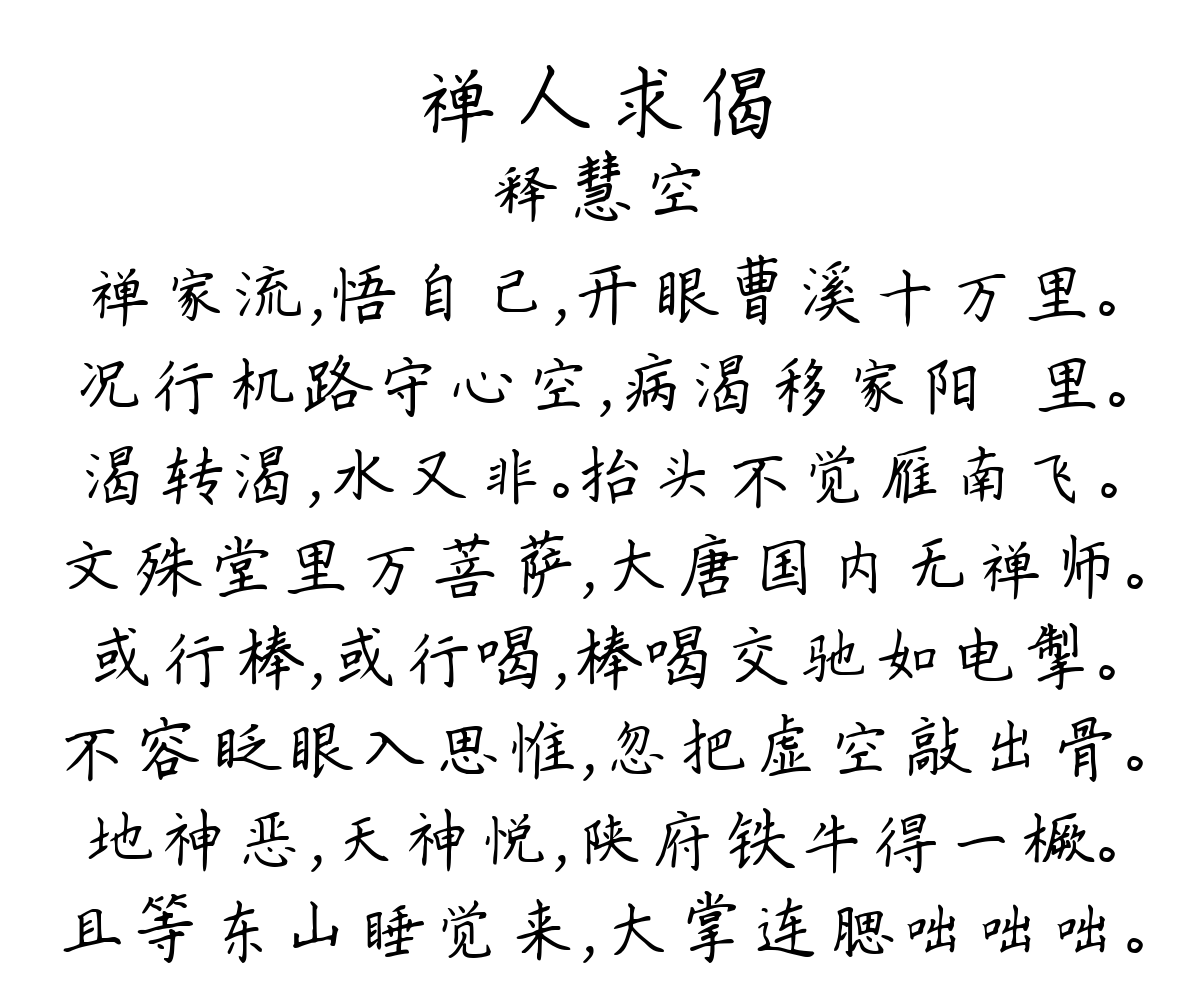 禅人求偈
释慧空
禅家流,悟自己,开眼曹溪十万里。
况行机路守心空,病渴移家阳 里。
渴转渴,水又非。抬头不觉雁南飞。
文殊堂里万菩萨,大唐国内无禅师。
或行棒,或行喝,棒喝交驰如电掣。
不容眨眼入思惟,忽把虚空敲出骨。
地神恶,天神悦,陕府铁牛得一橛。
且等东山睡觉来,大掌连腮咄咄咄。